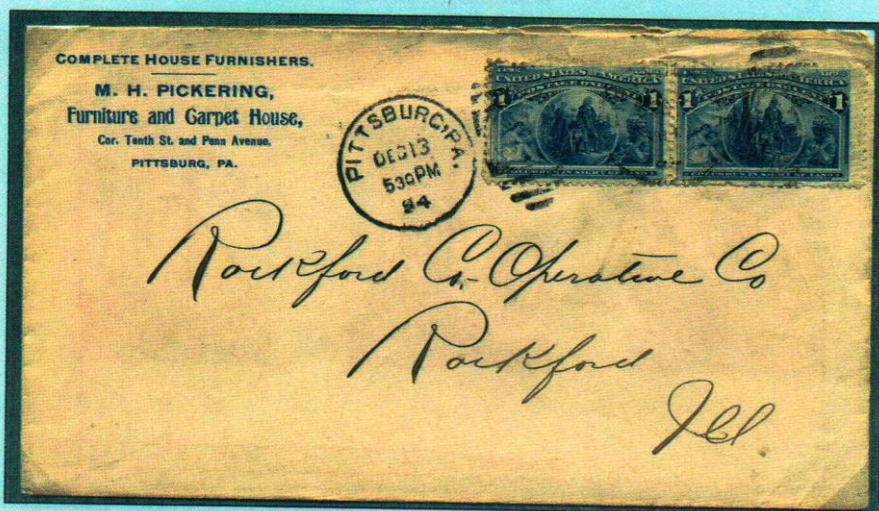 COMPLETE HOUSE FURNISHERS.
M. H. PICKERING,
Furniture and Carpet House,
Cor. Tenth St. and Penn Avenue,
PITTSBURG, PA.
PITTSBURG, PA.
DEC 13
530 PM
94
UNITED STATES OF AMERICA
POSTAGE ONE CENT
1 1
COLUMBUS IN SIGHT OF LAND
UNITED STATES OF AMERICA
1 1
COLUMBUS IN SIGHT OF LAND
Rockford Co-Operative Co
Rockford
Ill.